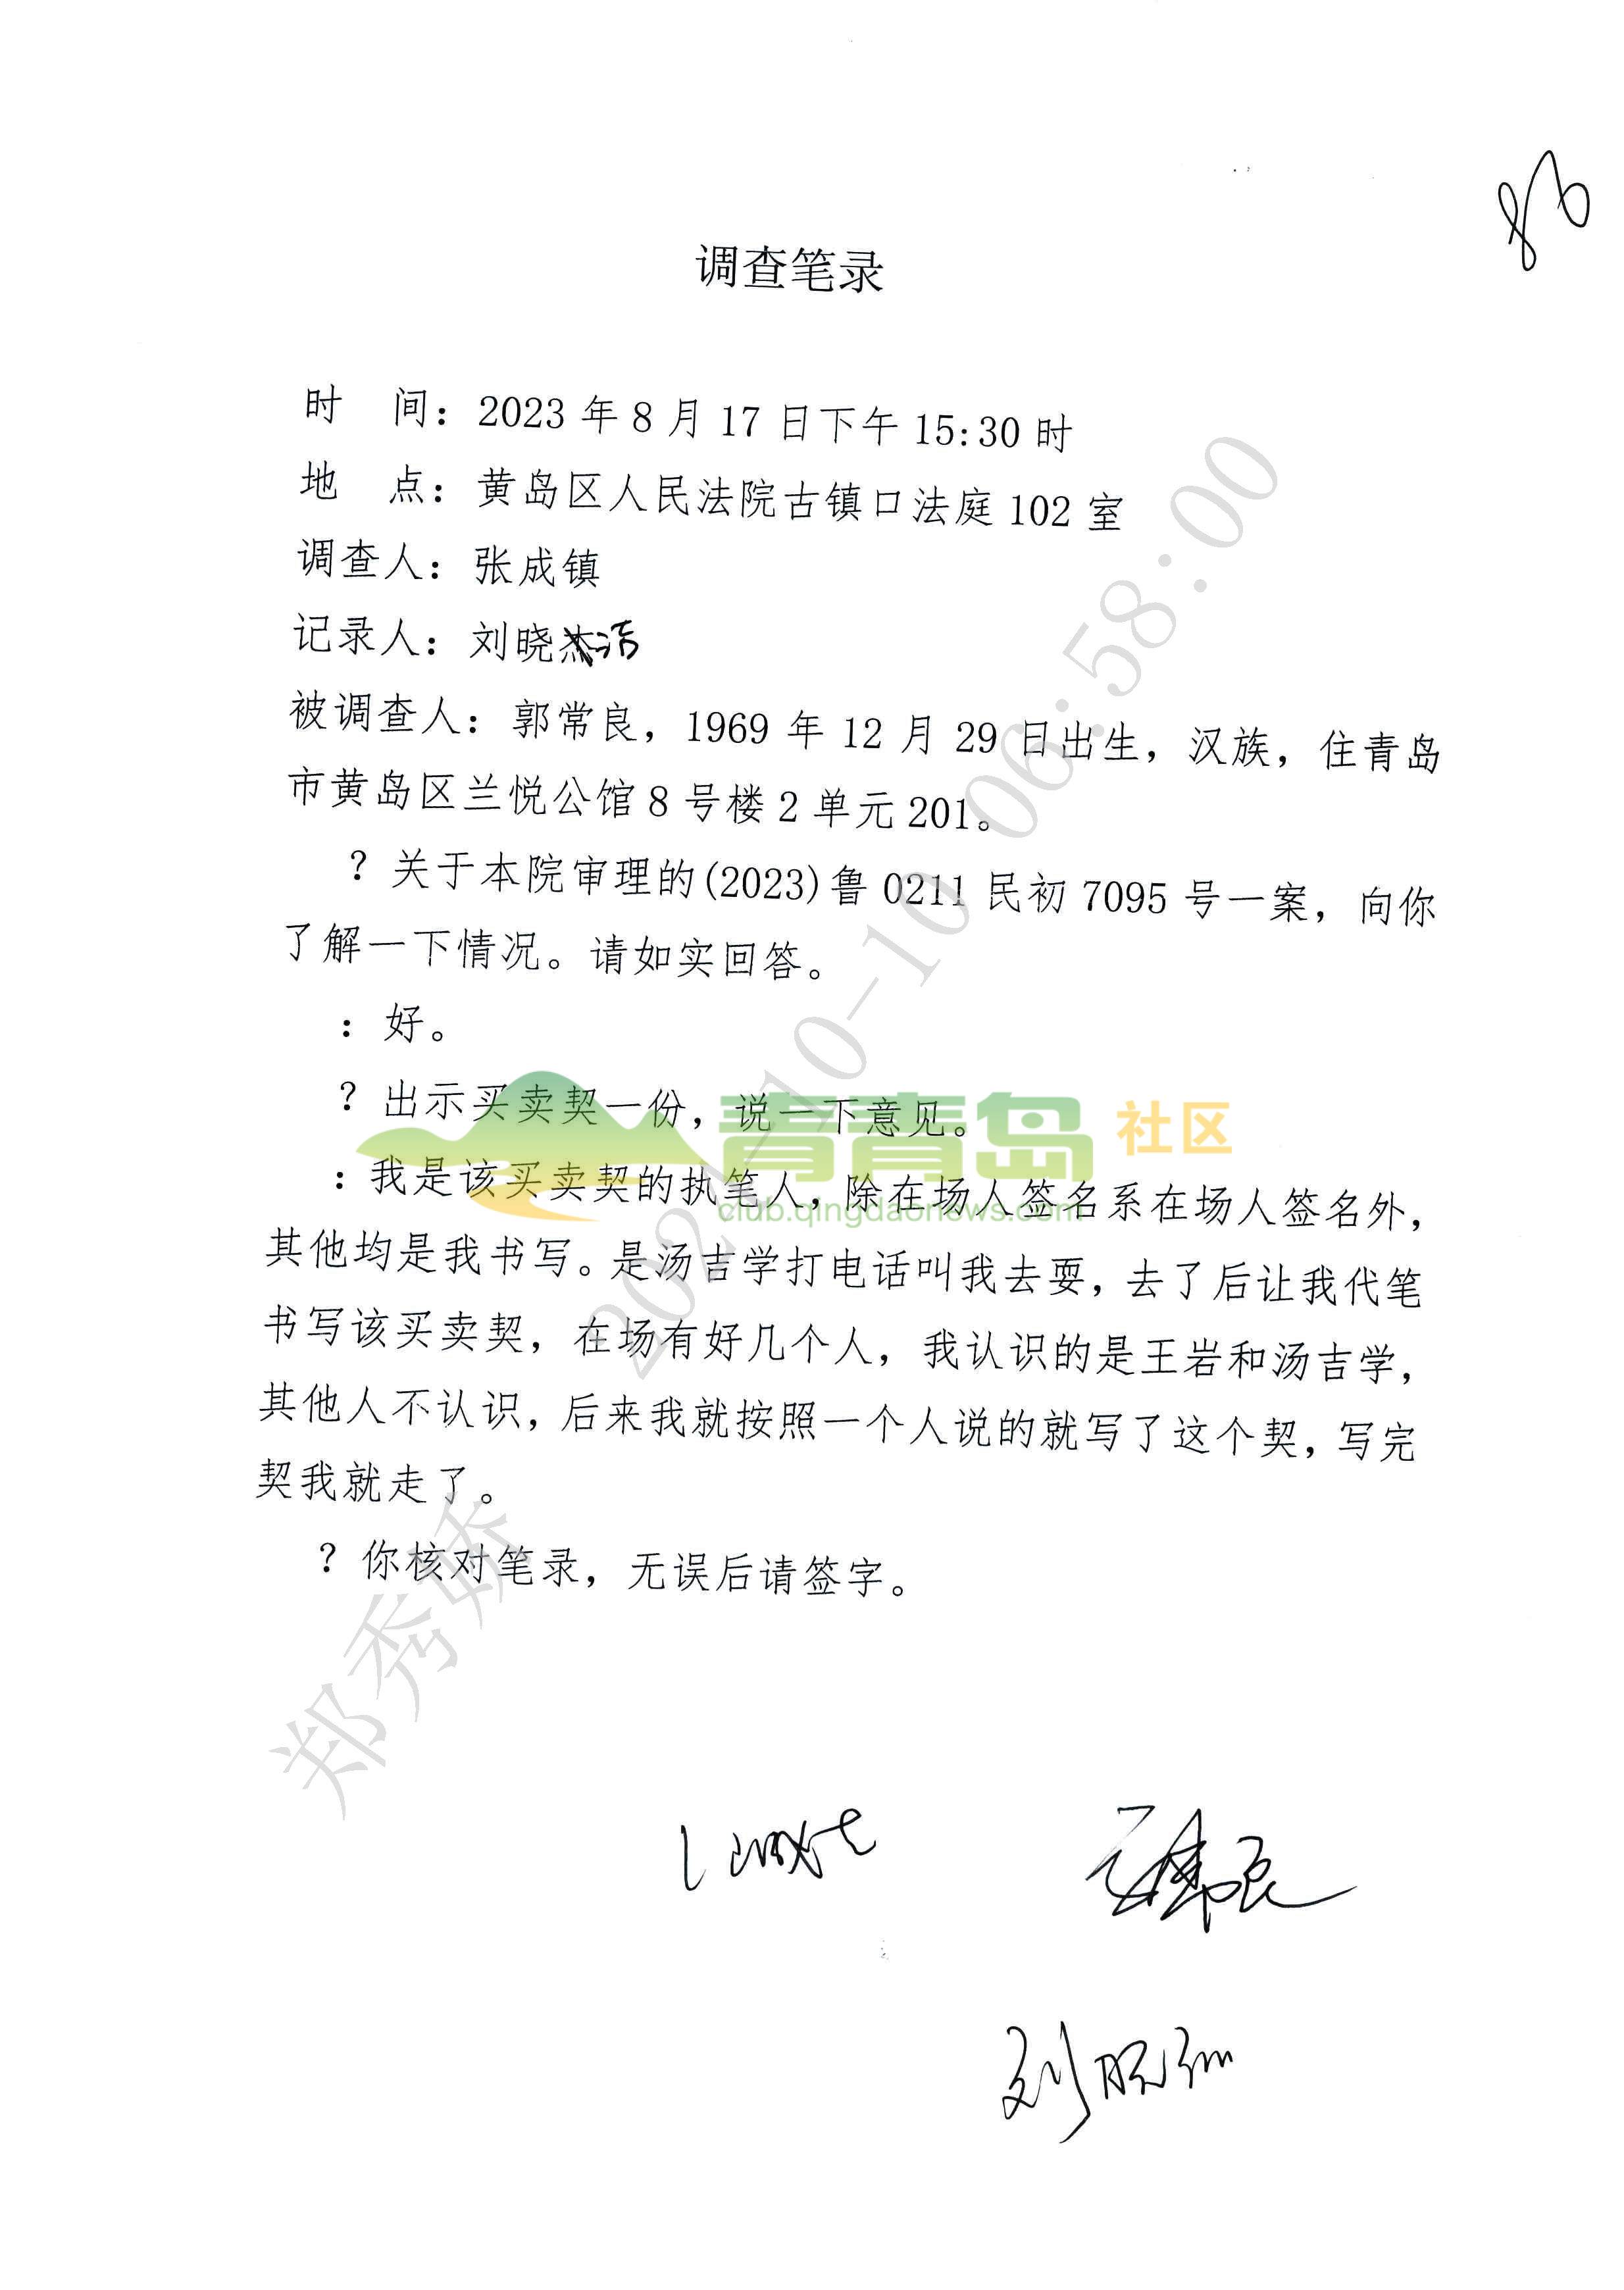 86
调查笔录
时 间：2023 年 8 月 17 日下午 15:30 时
地 点：黄岛区人民法院古镇口法庭 102 室
调查人：张成镇
记录人：刘晓洁
被调查人：郭常良，1969 年 12 月 29 日出生，汉族，住青岛
市黄岛区兰悦公馆 8 号楼 2 单元 201。
？关于本院审理的(2023)鲁 0211 民初 7095 号一案，向你
了解一下情况。请如实回答。
：好。
？出示买卖契一份，说一下意见。
青青岛 社区
club.qingdaonews.com
：我是该买卖契的执笔人，除在场人签名系在场人签名外，
其他均是我书写。是汤吉学打电话叫我去耍，去了后让我代笔
书写该买卖契，在场有好几个人，我认识的是王岩和汤吉学，
其他人不认识，后来我就按照一个人说的就写了这个契，写完
契我就走了。
？你核对笔录，无误后请签字。
郑秀娇 2021-10-10 06:58:00